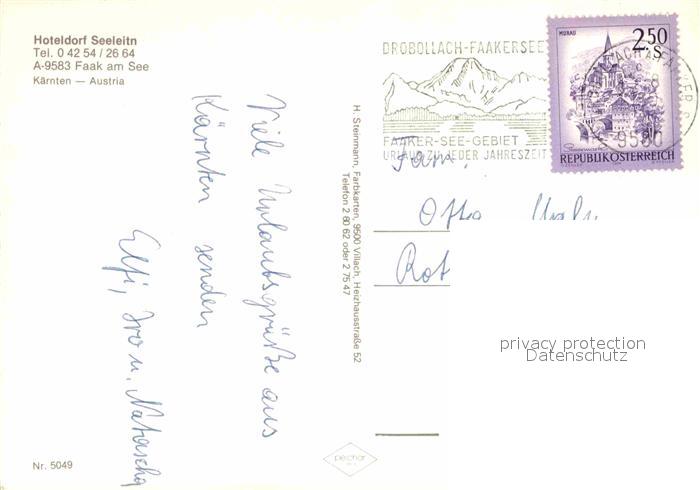 Hoteldorf Seeleitn
Tel. 0 42 54 / 26 64
A-9583 Faak am See
Kärnten — Austria
Viele Urlaubsgrüße aus
Kärnten senden
Elfi, Ivo u. Natascha
Nr. 5049
H. Steinmann, Farbkarten, 9500 Villach, Heizhausstraße 52
Telefon 2 80 62 oder 2 75 47
DROBOLLACH-FAAKERSEE
FAAKER-SEE-GEBIET
URLAUB ZU JEDER JAHRESZEIT
MURAU
2.50
S
REPUBLIK ÖSTERREICH
9580
Fam.
Otto
Rot
privacy protection
Datenschutz
pechar